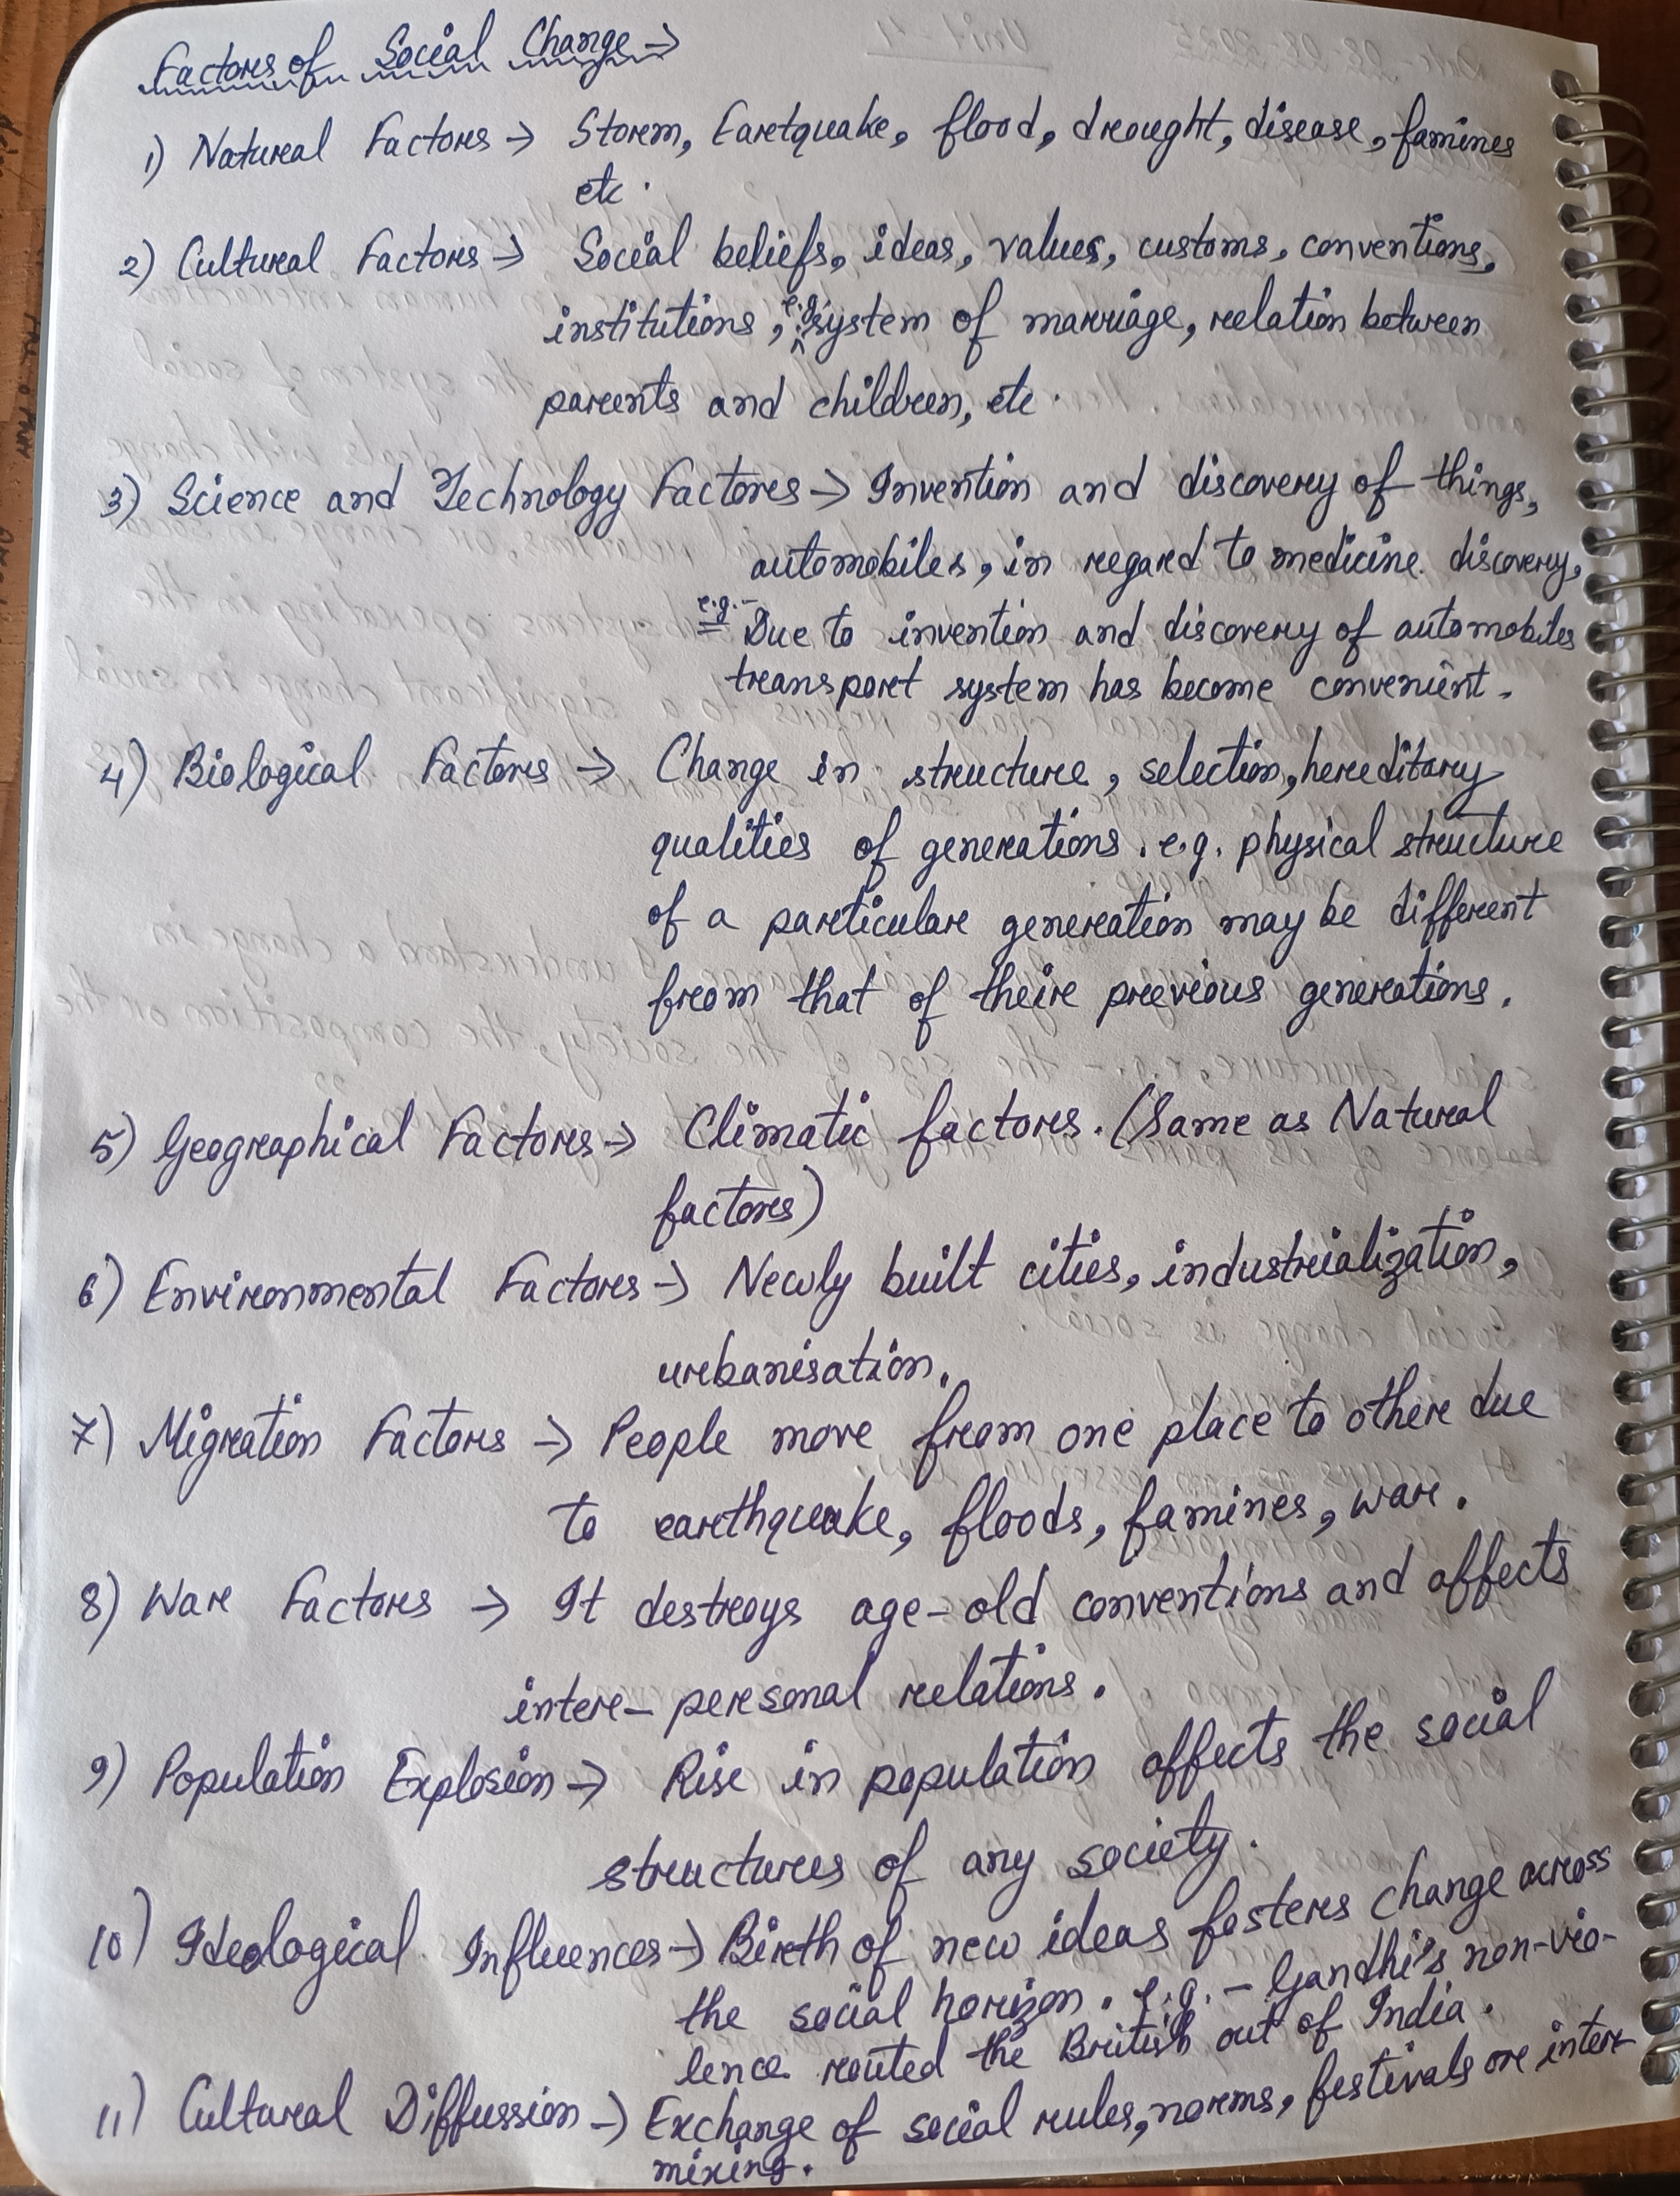 Factors of Social Change →
1) Natural Factors → Storm, Eartquake, flood, drought, disease, famines
etc.
2) Cultural Factors → Social beliefs, ideas, values, customs, conventions,
institutions, e.g. system of marriage, relation between
parents and children, etc.
3) Science and Technology Factors → Invention and discovery of things,
automobiles, in regard to medicine discovery,
e.g.- Due to invention and discovery of automobiles
transport system has become convenient.
4) Biological Factors → Change in structure, selection, hereditary
qualities of generations. e.g. physical structure
of a particular generation may be different
from that of their previous generations.
5) Geographical Factors → Climatic factors. (Same as Natural
factors)
6) Environmental Factors → Newly built cities, industrialization,
urbanisation.
7) Migration Factors → People move from one place to other due
to earthquake, floods, famines, war.
8) War Factors → It destroys age-old conventions and affects
inter-personal relations.
9) Population Explosion → Rise in population affects the social
structures of any society.
10) Ideological Influences → Birth of new ideas fosters change across
the social horizon. e.g. - Gandhi's non-vio-
lence routed the British out of India.
11) Cultural Diffussion → Exchange of social rules, norms, festivals are inter
mixing.